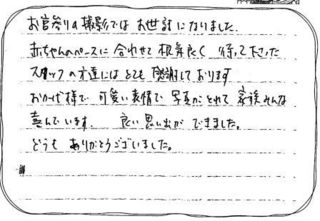 お宮参りの撮影ではお世話になりました。
赤ちゃんのペースに合わせて根気良く待って下さった
スタッフの方達にはとても感謝しております
おかげ様で可愛い表情で写真がとれて家族みんな
喜んでいます。良い思い出ができました。
どうもありがとうございました。